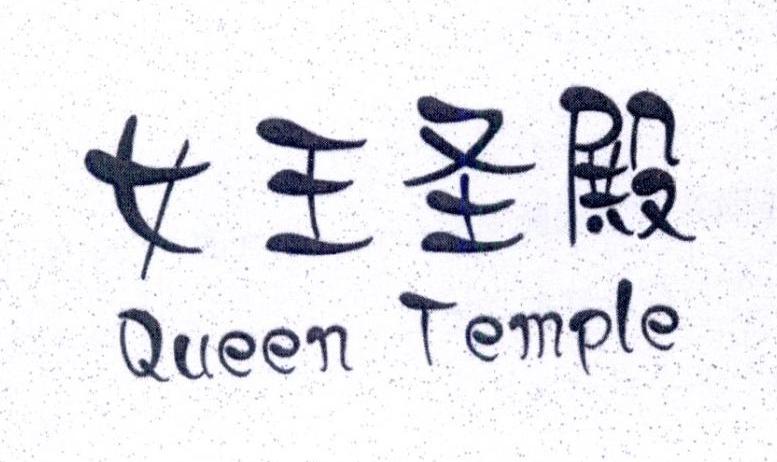 女王圣殿
Queen Temple